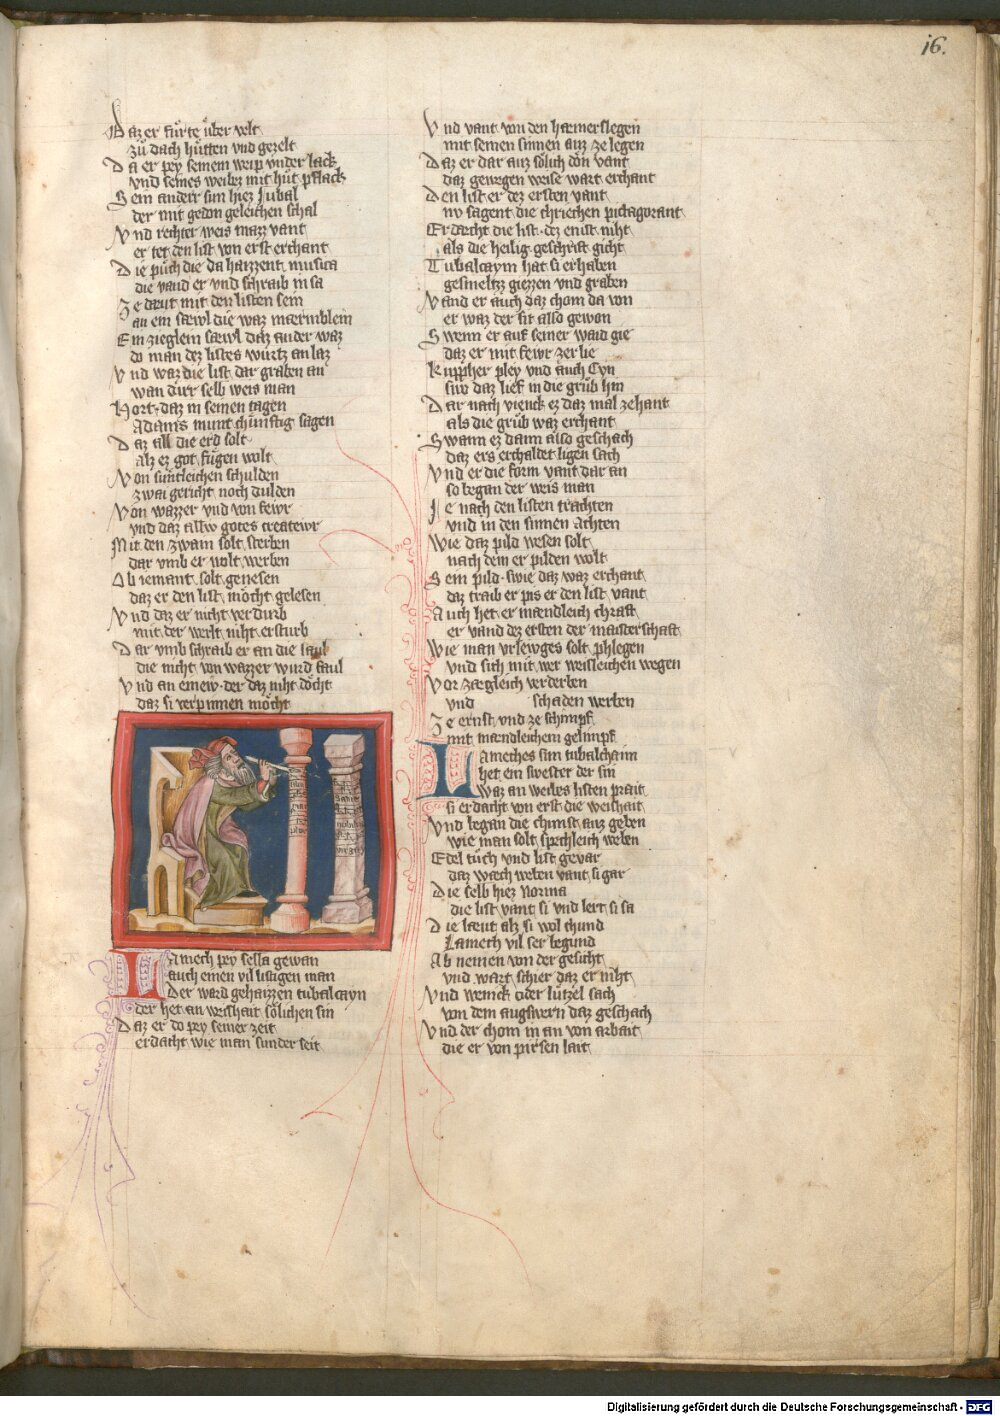 16.
Daz er fuͤrte uͤber velt
zuͦ dach huͤtten vnd gezelt
Da er pey seinem weip vnder lack
vnd seines weibez mit huͦt pflack
Sein anderr sun hiez Jubal
der mit gedon geleichen schal
Vnd rechter weis mazz vant
er tet den list von erst erchant
Die puͤch die da haizzent musica
die vand er vnd schraib in sa
Ze dæut mit den listen sein
an ein sæwl die waz mærmblein
Ein zieglein sæwl daz ander waz
do man dez listes wuͤrtz an laz
Vnd waz die list dar graben an
wan durr selb weis man
Hort daz in seinen tagen
Adams munt chuͤnftig sagen
Daz all die erd solt
alz ez got fuͤgen wolt
Von suntleichen schulden
zwai gericht noch dulden
Von wazzer vnd von fewr
vnd daz allew gotes createwr
Mit den zwain solt sterben
dar vmb er wolt werben
Ob iemant solt genesen
daz er den list moͤcht gelesen
Vnd daz er nicht verdurb
mit der werlt niht ersturb
Dar vmb schraib er an die saul
die nicht von wazzer wurd faul
Vnd an einew der daz niht doͤcht
daz si verprinnen moͤcht
Lamech pey sella gewan
auch einen vil listigen man
Der ward gehaizzen tubalcayn
der het an weishait soͤlichen sin
Daz er do pey seiner zeit
erdacht wie man sunder seit
Vnd vant von den hæmerslegen
mit seinen sinnen auz ze legen
Daz er dar auz soͤlich doͤn vant
daz geurgen weise wart erchant
Den list er dez ersten vant
nv sagent die chriechen pictagorant
Erdæcht die list dez enist niht
als die heilig geschrift gicht
Tubalcaym hat si erhaben
gesmeltzz giezzen vnd graben
Vand er auch daz chom da von
er waz der sit also gewon
Swenn er auf seiner waid gie
daz er mit fewr zerlie
Kuppher pley vnd auch Cyn
swo daz lief in die gruͤb hin
Dar nach vienck ez daz mal zehant
als die gruͤb waz erchant
Swann ez dann also geschach
daz ers erchaltet ligen sach
Vnd er die form vant dar an
so began der weis man
Je nach den listen trachten
vnd in den sinnen achten
Wie daz pild wesen solt
nach dem er pilden wolt
Sein pild swie daz waz erchant
daz traib er pis er den list vant
Auch het er mændleich chraft
er vand dez ersten der maisterschaft
Wie man vrlewges solt phlegen
vnd sich mit wer weisleichen wegen
Vor zægleich verderben
vnd schaden werben
Ze ernst vnd ze schimpf
mit mændleichem gelimpf
Lameches sun tubalchain
het ein swester der sin
Waz an weibes listen prait
si erdacht von erst die weishait
Vnd began die chunst auz geben
wie man solt spæchleich weben
Edel tuͤch vnd list gevar
daz wæch weben vant si gar
Die selb hiez Norma
die list vant si vnd lert si sa
Die læut alz si wol chund
Lamech vil ser begund
Ab nemen von der gesicht
vnd wart schier daz er niht
Vnd wenick oder luͤtzel sach
von dem augswern daz geschach
Vnd der chom in an von arbait
die er von pirsen lait
Digitalisierung gefördert durch die Deutsche Forschungsgemeinschaft - DFG